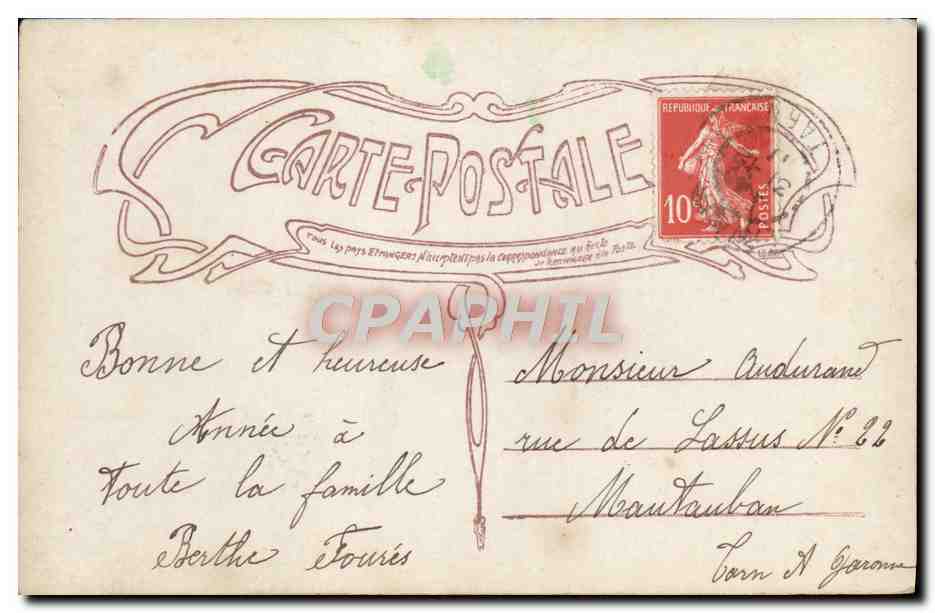 CARTE-POSTALE
TOUS LES PAYS ETRANGERS N'ACCEPTENT PAS LA CORRESPONDANCE AU RECTO
SE RENSEIGNER A LA POSTE
REPUBLIQUE FRANÇAISE
10c
POSTES
CPAPHIL
Bonne et heureuse
Année à
toute la famille
Berthe Fourés
Monsieur Audurand
rue de Lassus N° 22
Mautauban
Tarn & Garonne